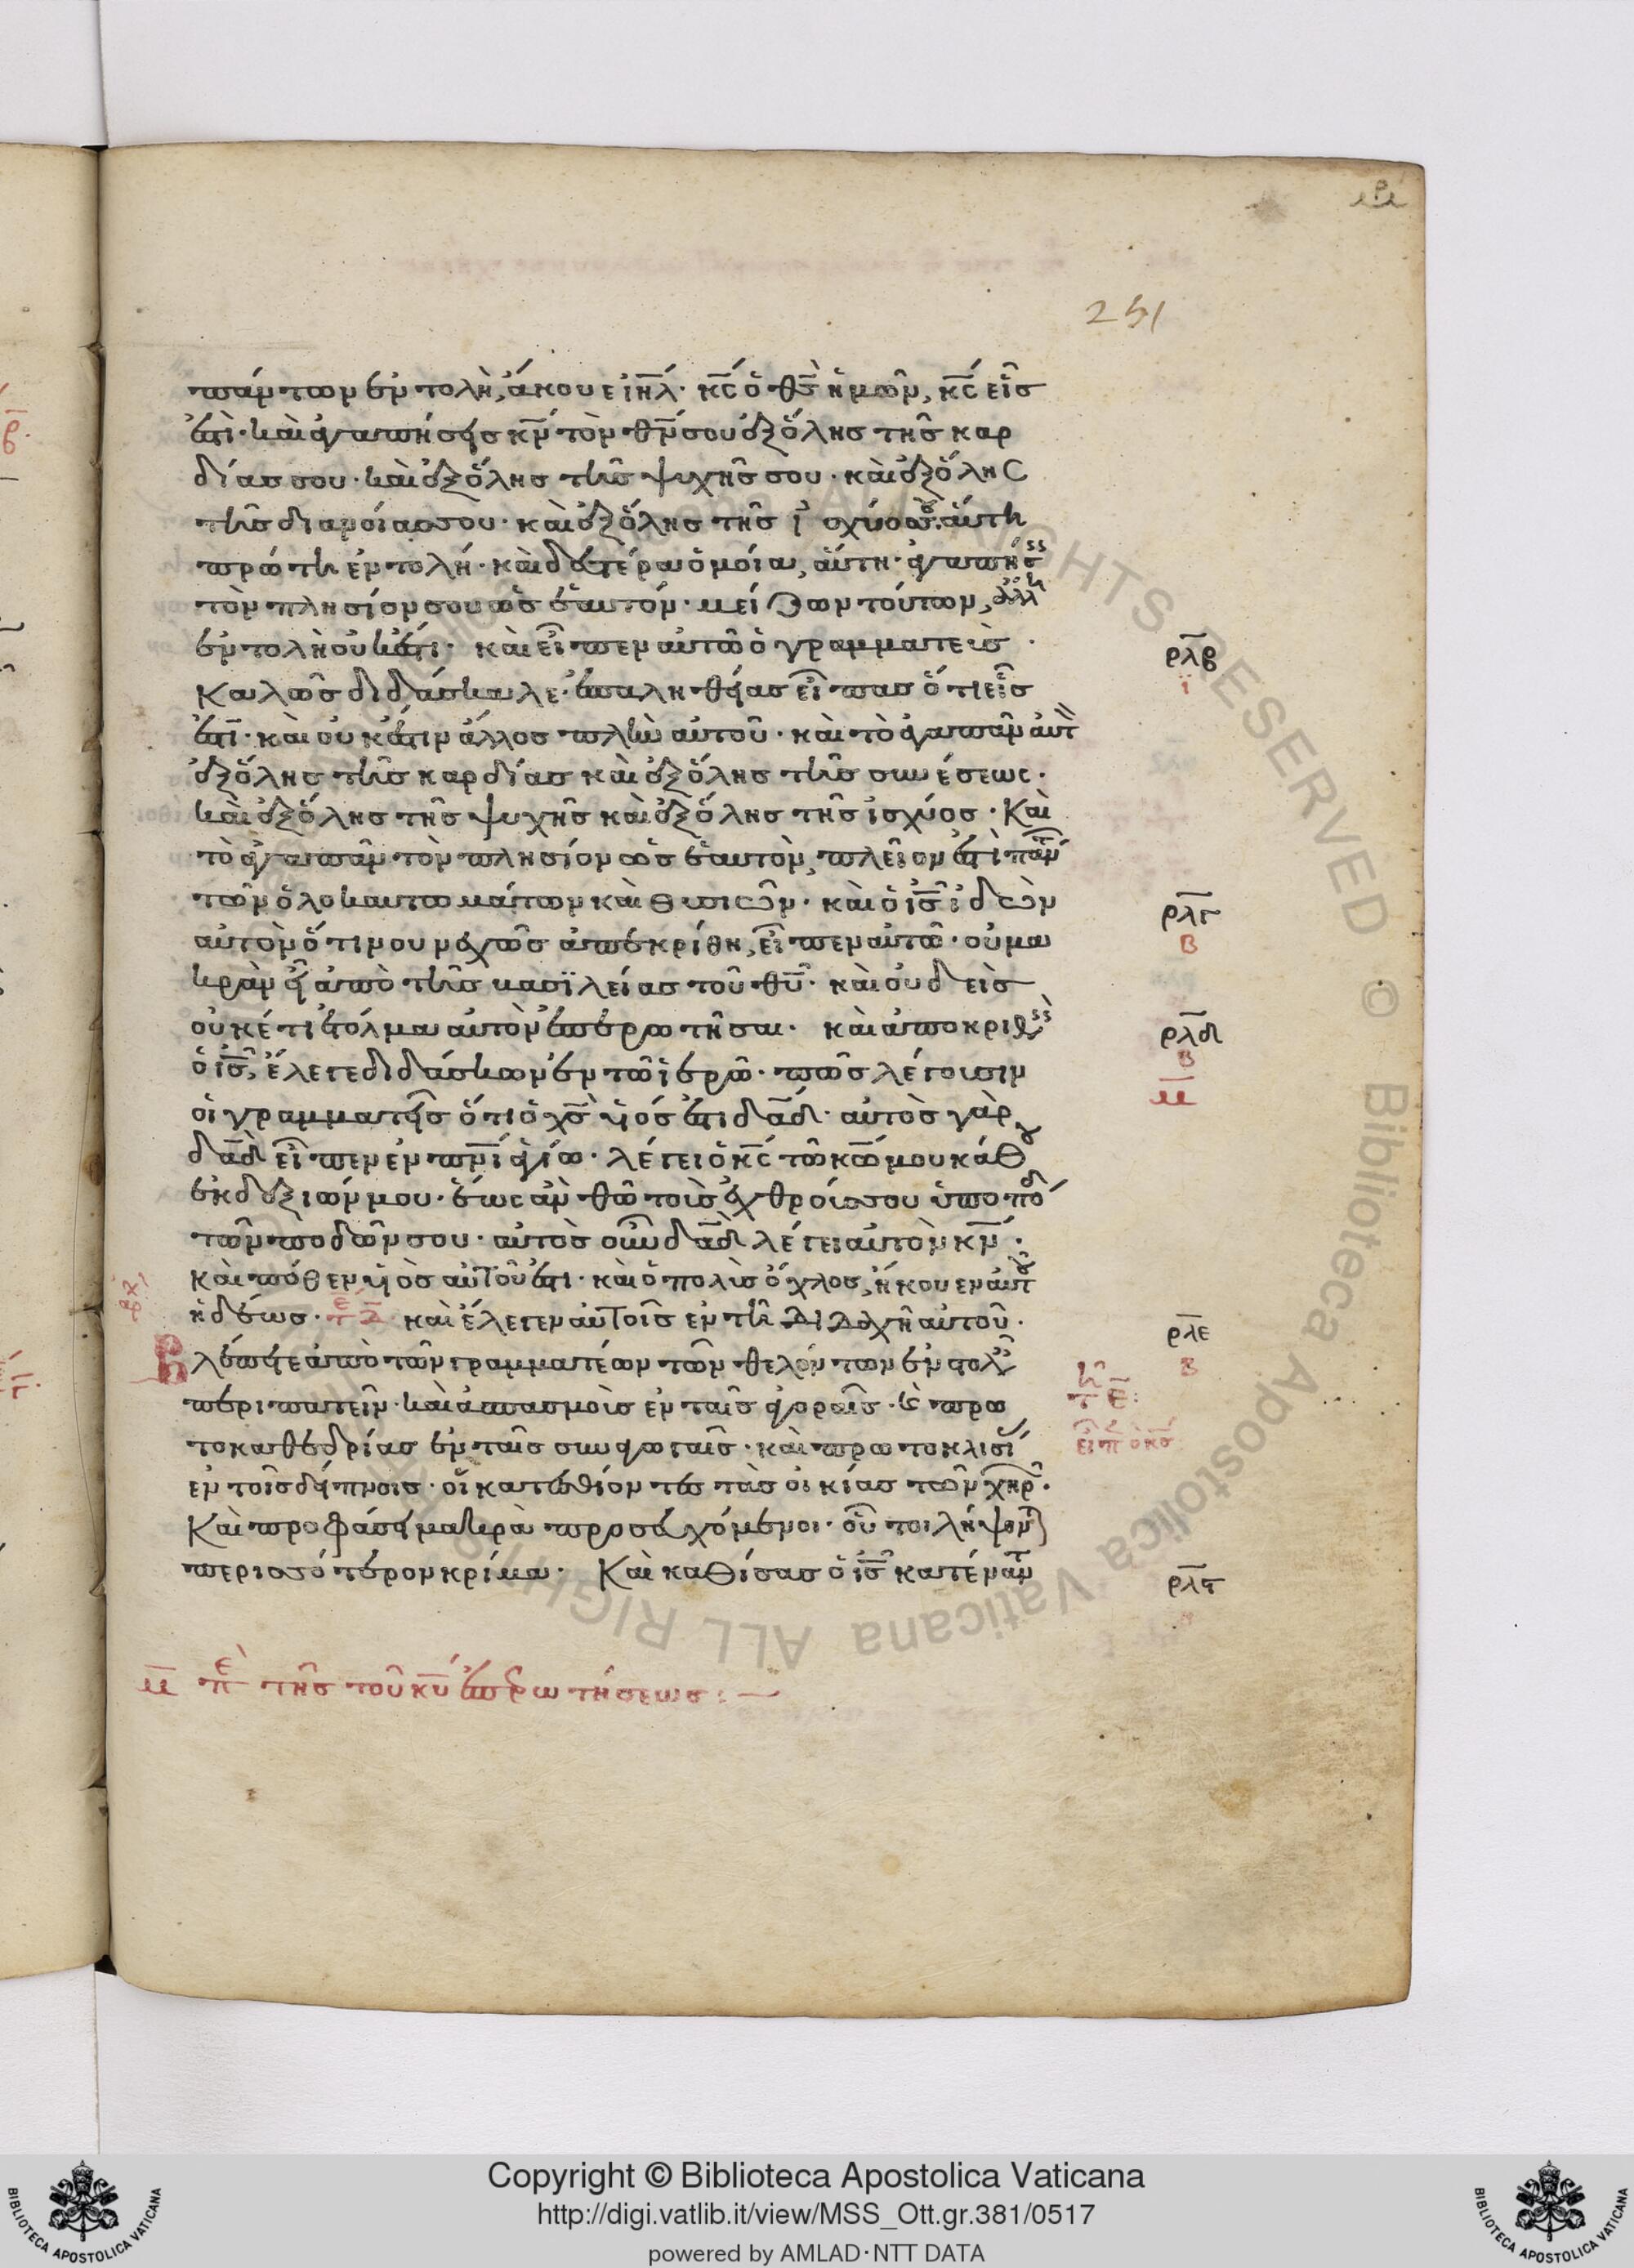 251
πάντων ἐντολὴ, ἄκουε ἰη̅λ· κς̅ ὁ θς̅ ἡμῶν, κς̅ εἷσ
ἐστὶ· καὶ ἀγαπήσεις κν̅ τὸν θν̅ σου ἐξ ὅλησ τῆσ καρ
δίασ σου· καὶ ἐξ ὅλησ τῆσ ψυχῆσ σου· καὶ ἐξ ὅλης
τῆσ διανοίασ σου· καὶ ἐξ ὅλησ τῆσ ἰσχύοσ σου· αὕτη
πρώτη ἐντολή· καὶ δευτέρα ὁμοία, αὕτη· ἀγαπήσεισ
τὸν πλησίον σου ὡσ ἑαυτόν· μείζων τούτων, ἄλλη
ἐντολὴ οὐκ ἔστι· καὶ εἶπεν αὐτῶ ὁ γραμματεὺσ·
ρλβ
ϊ
Καλῶσ διδάσκαλε· ἐπ' ἀληθείασ εἶπασ ὅτι εἷσ
ἐστι· καὶ οὐκ ἔστιν ἄλλοσ πλὴν αὐτοῦ· καὶ τὸ ἀγαπᾶν αὐτὸν
ἐξ ὅλησ τῆσ καρδίασ καὶ ἐξ ὅλησ τῆσ συνέσεως·
καὶ ἐξ ὅλησ τῆσ ψυχῆσ καὶ ἐξ ὅλησ τῆσ ἰσχύοσ· Καὶ
τὸ ἀγαπᾶν τὸν πλησίον ὡσ ἑαυτὸν, πλεῖον ἐστὶ πάντων
τῶν ὁλοκαυτωμάτων καὶ θυσιῶν· καὶ ὁ ις̅ ἰδὼν
ρλγ
β
αὐτὸν ὅτι νουνεχῶσ ἀπεκρίθη, εἶπεν αὐτῶ· οὐ μα
κρὰν εἶ ἀπὸ τῆσ βασϊλείασ τοῦ θυ̅· καὶ οὐδεὶσ
οὐκέτι ἐτόλμα αὐτὸν ἐπερωτῆσαι· καὶ ἀποκριθεὶσ
ρλδ
β
μ̅
ὁ ις̅, ἔλεγε διδάσκων ἐν τῶ ἱερῶ· πῶσ λέγουσιν
οἱ γραμματεῖσ ὅτι ὁ χς̅ υἱόσ ἐστι δα̅δ· αὐτὸσ γὰρ
δα̅δ εἶπεν ἐν πνι̅ ἁγίω· λέγει ὁ κς̅ τῶ κω̅ μου κάθου
ἐκ δεξιῶν μου· ἕως ἂν θῶ τοὺσ ἐχθρούσ σου ὑποπόδιον
τῶν ποδῶν σου· αὐτὸσ οὖν δα̅δ λέγει αὐτὸν κν̅·
καὶ πόθεν υἱὸσ αὐτοῦ ἐστι· καὶ ὁ πολὺσ ὄχλοσ, ἤκουεν αὐτοῦ
ἡδέωσ· καὶ ἔλεγεν αὐτοῖσ ἐν τῆ διδαχῆ αὐτοῦ·
ρλε
β
Βλέπετε ἀπὸ τῶν γραμματέων τῶν θελόντων ἐν στολαῖσ
περιπατεῖν· καὶ ἀσπασμοὺσ ἐν ταῖσ ἀγοραῖσ· καὶ πρω
τοκαθεδρίασ ἐν ταῖσ συναγωγαῖσ· καὶ πρωτοκλισίασ
εἶπ ὁ κς̅
ἐν τοῖσ δείπνοισ· οἱ κατεσθίοντεσ τὰσ οἰκίασ τῶν χηρῶν·
Καὶ προφάσει μακρὰ προσευχόμενοι· οὗτοι λήψονται
περισσότερον κρίμα· Καὶ καθίσασ ὁ ις̅ κατέναντι
ρλϛ
μ̅ περὶ τῆσ τοῦ κυ̅ ἐπερωτήσεωσ:—
Copyright © Biblioteca Apostolica Vaticana
http://digi.vatlib.it/view/MSS_Ott.gr.381/0517
powered by AMLAD·NTT DATA